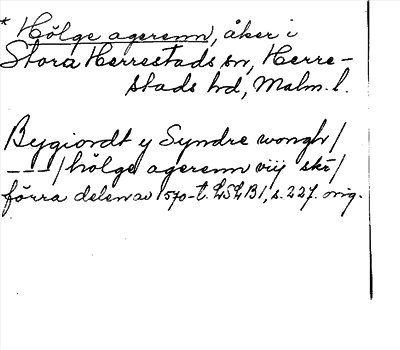 * Hölge agerenn, åker i
Stora Herrestads sn, Herre-
stads hd, Malm. l.
Bygiordt y Syndre wongh/
---/hölge agerenn viij skr/
förra delen av 1570-t. LSLB1, s. 227. orig.